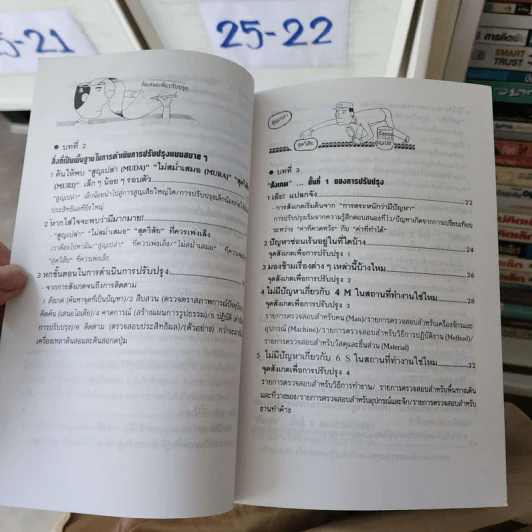 25-21
25-22
SMART
TRUST
ข้อเสนอเพื่อปรับปรุง
● บทที่ 2
สิ่งที่เป็นพื้นฐานในการดำเนินการปรับปรุงแบบสบาย ๆ
1 ค้นให้พบ "สูญเปล่า (MUDA)" "ไม่สม่ำเสมอ (MURA)" "สุดวิสัย
(MURI)" เล็ก ๆ น้อย ๆ รอบตัว
"สูญเปล่า" เล็กน้อยนำไปสู่การสูญเสียใหญ่โต/การปรับปรุงเล็กน้อยก่อให้เกิด
ประสิทธิผลที่ยิ่งใหญ่
2 หากใส่ใจจะพบว่ามีมากมาย!
"สูญเปล่า" "ไม่สม่ำเสมอ" "สุดวิสัย" ที่ควรเพ่งเล็ง
"สูญเปล่า" ที่ควรเพ่งเล็ง/"ไม่สม่ำเสมอ" ที่ควรเพ่งเล็ง
"สุดวิสัย" ที่ควรเพ่งเล็ง
3 หกขั้นตอนในการดำเนินการปรับปรุง
- จากการสังเกตจนถึงการติดตาม
1 สังเกต (ค้นหาจุดที่เป็นปัญหา)/2 สืบสวน (ตรวจตราสภาพการณ์ปัจจุบัน)
คิดค้น (เสนอไอเดีย)/4 คาดการณ์ (สร้างแผนการรูปธรรม)/5 ปฏิบัติ
การปรับปรุง)/6 ติดตาม (ตรวจสอบประสิทธิผล)/(ตัวอย่าง)
สูญเปล่า
สุดวิสัย
● บทที่ 3
"สังเกต" ... ขั้นที่ 1 ของการปรับปรุง
1 เอ๊ะ! แปลกจัง 22
- การสังเกตเริ่มต้นจาก "การตระหนักว่ามีปัญหา"
การปรับปรุงเริ่มจากความรู้สึกตอบสนองที่ไว/ปัญหาเกิดจากการเปรียบเทียบ
ระหว่าง "ค่าที่คาดหวัง" กับ "ค่าที่ทำได้"
2 ปัญหาซ่อนเร้นอยู่ในที่ใดบ้าง 24
จุดสังเกตเพื่อการปรับปรุง 1
3 มองข้ามเรื่องต่าง ๆ เหล่านี้บ้างไหม 26
จุดสังเกตเพื่อการปรับปรุง 2
4 ไม่มีปัญหาเกี่ยวกับ 4 M ในสถานที่ทำงานใช่ไหม 28
จุดสังเกตเพื่อการปรับปรุง 3
รายการตรวจสอบสำหรับคน (Man)/รายการตรวจสอบสำหรับเครื่องจักรและ
อุปกรณ์ (Machine)/รายการตรวจสอบสำหรับวิธีการปฏิบัติงาน (Method)/
รายการตรวจสอบสำหรับวัสดุและชิ้นส่วน (Material)
5 ไม่มีปัญหาเกี่ยวกับ 6 S ในสถานที่ทำงานใช่ไหม 32
จุดสังเกตเพื่อการปรับปรุง 4
รายการตรวจสอบสำหรับวิธีการทำงาน/ รายการตรวจสอบสำหรับพื้นทางเดิน
และที่วางของ/รายการตรวจสอบสำหรับอุปกรณ์และจิ๊ก/รายการตรวจสอบสำหรับ
งานทำค้าง